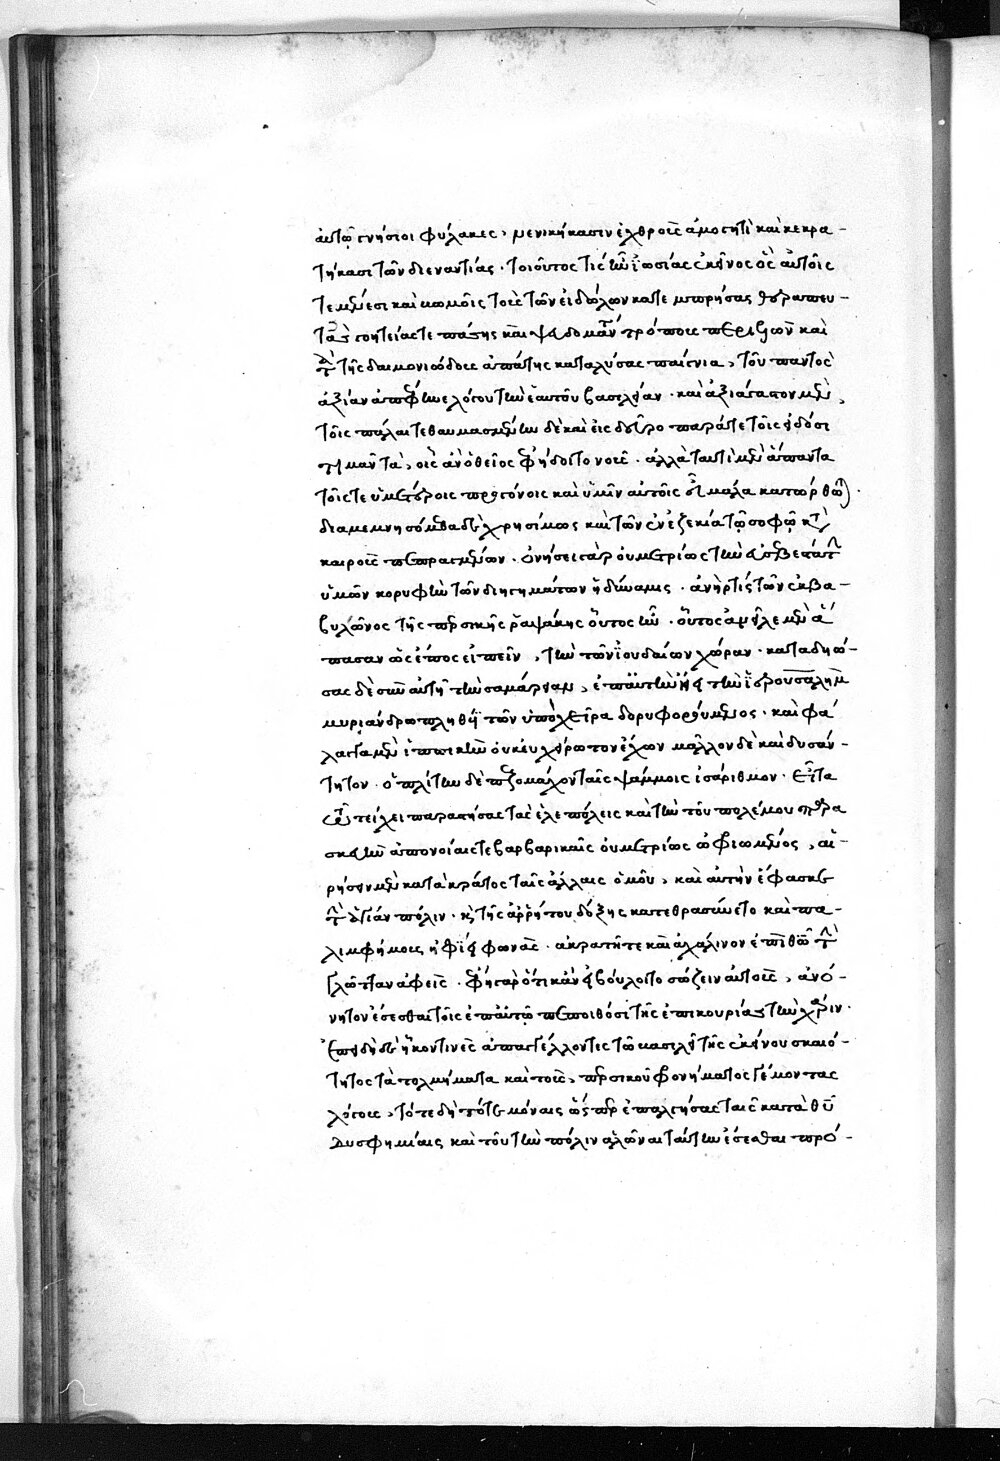 αὐτῷ γνήσιοι φύλακες, νενικήκασιν ἐχθροὺς ἀμογητὶ καὶ κεκρα-
τήκασι τῶν διεναντίας. τοιοῦτός τις ἦν ἰωσίας ἐκεῖνος ὃς αὐτοῖς
τεμένεσι καὶ βωμοῖς τοὺς τῶν εἰδώλων κατεμπρήσας θεραπευ-
τὰς γοητείας τε πάσης καὶ ψευδομάντεις τρόπους περιελὼν καὶ
τὰ τῆς δαιμονιώδους ἀπάτης καταλύσας παίγνια, τοῦ παντὸς
ἀξίαν ἀπέφηνε λόγου τὴν ἑαυτοῦ βασιλείαν. καὶ ἀξιάγαστον μὲν,
τοῖς πάλαι τεθαυμασμένην δὲ καὶ εἰς δεῦρο παρά γε τοῖς εἰδόσι
τιμᾶν τὰ, οἷς ἂν ὁ θεῖος ἐφήδοιτο νοῦς. ἀλλὰ ταυτὶ μὲν ἅπαντα
τοῖς τε ὑμετέροις προγόνοις καὶ ὑμῖν αὐτοῖς ὅτι μάλα κατώρθωται.
διαμεμνησόμεθα δὲ χρησίμως καὶ τῶν ἐν ἐζεκία τῷ σοφῷ κατὰ
καιροὺς πεπραγμένων. ὀνήσει γὰρ οὐ μετρίως τὴν εὐσεβεστάτην
ὑμῶν κορυφὴν τῶν διηγημάτων ἡ δύναμις. ἀνήρ τις τῶν ἐκ βα-
βυλῶνος τῆς περσικῆς ῥαψάκης οὗτος ἦν. οὗτος ἀφεῖλε μὲν ἅ
πασαν ὡς ἔπος εἰπεῖν, τὴν τῶν ἰουδαίων χώραν. καταδηώ-
σας δὲ σὺν αὐτῇ τὴν σαμάρειαν, ἐπ' αὐτὴν ᾔει τὴν ἱερουσαλὴμ
μυρίανδρω πληθύϊ τῶν ὑπὸ χεῖρα δορυφορούμενος. καὶ φά
λαγγα μὲν ἱππικὴν οὐκ εὐχείρωτον ἔχων μᾶλλον δὲ καὶ δυσάν-
τητον. ὁπλίτην δὲ πεζομάχον ταῖς ψάμμοις ἰσάριθμον. εἶτα
τῷ τείχει παραστήσας τὰς ἑλεπόλεις καὶ τὴν τοῦ πολέμου παρα
σκευὴν ἀπονοίαις τε βαρβαρικαῖς οὐ μετρίως ὠφρυωμένος, αἱ-
ρήσειν μὲν κατὰ κράτος ταῖς ἄλλαις ὁμοῦ, καὶ αὐτὴν ἔφασκε
τὴν ἁγίαν πόλιν. καὶ τῆς ἀρρήτου δόξης κατεθρασύνετο καὶ πα-
λιμφήμους ἠφίει φωνὰς. ἀκρατῆ τε καὶ ἀχάλινον ἐπὶ θεὸν τὴν
γλῶτταν ἀφεὶς. ἔφη γὰρ ὅτι κἂν εἰ βούλοιτο σώζειν αὐτοὺς, ἀνό-
νητον ἔσεσθαι τοῖς ἐπ' αὐτῷ πεποιθόσι τῆς ἐπικουρίας τὴν χάριν.
ἐπειδὴ δὲ ἧκόν τινες ἀπαγγέλλοντες τῷ βασιλεῖ τῆς ἐκείνου σκαιό-
τητος τὰ τολμήματα καὶ τοὺς, περσικοῦ φρονήματος γέμοντας
λόγους, τότε δὴ τότε μόναις ὥσπερ ἐπαλγήσας ταῖς κατὰ θεοῦ
δυσφημίαις καὶ τοῦ τὴν πόλιν ἁλῶναι ταύτην ἔσεσθαι προ-